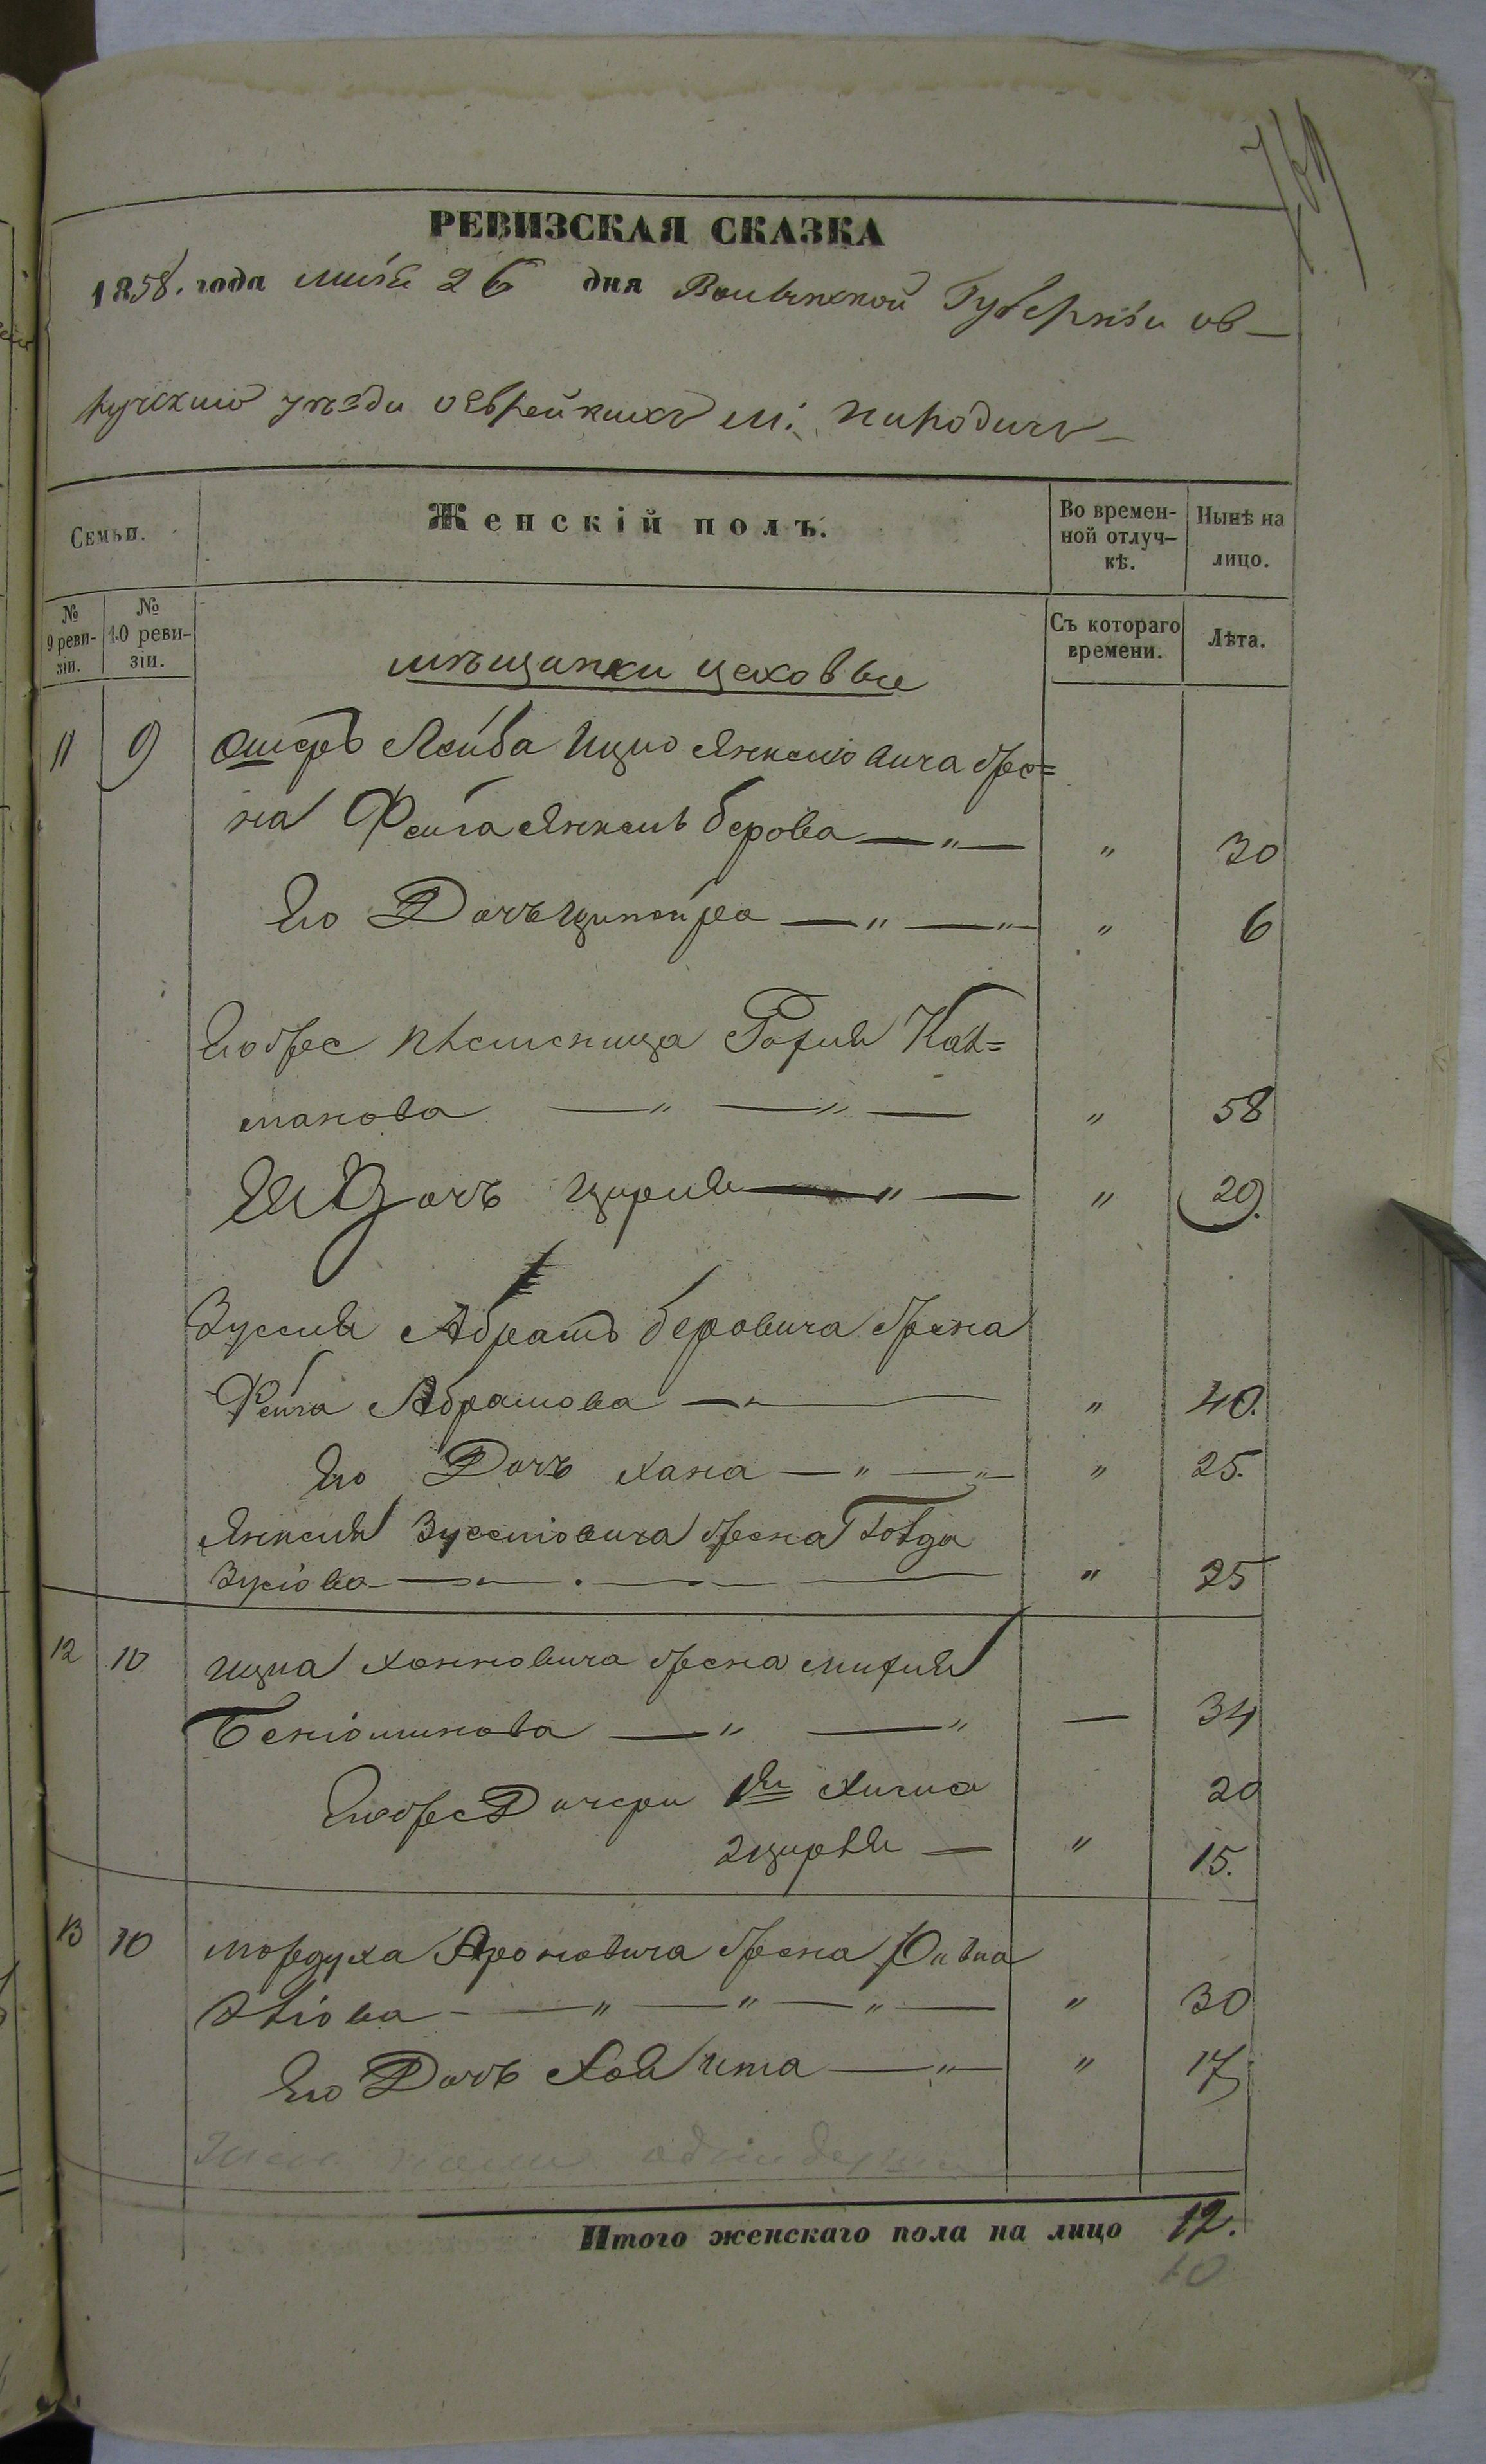 РЕВИЗСКАЯ СКАЗКА
1858. года маія 26 дня Волынской Губерніи ов-
ручскаго уѣзда о еврейскихъ м: Народичъ
Семьи.
Женскій полъ.
Во времен-
ной отлуч-
кѣ.
Нынѣ на
лицо.
№
9 реви-
зіи.
№
10 реви-
зіи.
Съ котораго
времени.
Лѣта.
мѣщанки цеховые
11 9 Лейба Ицко Янкелiовича же=
на Фейга Янкель Берова — " — " 30
Его Дочь Ципойра — " — " — " 6
Его же племеница Кал=
манова — " — " — " 58
Дочь Цирля — " — " 20.
Зуселя Абрамъ Беровича жена
Фейга Абрамова — " 40.
Его Дочь Хана — " — " — " 25.
Янкеля Зуселiовича жена Голда
Зусiова — " 25
12 10 Ицка Хаимовича жена Махля
Бенiоминова — " — " — 34
Его же Дочери 1я 20
2 Цирля — " 15.
13 10 Мордуха Ароновича жена Ривка
— " — " — " — " 30
Его Дочь Хая Ита — " — " 17
Итого женскаго пола на лицо 12.
10